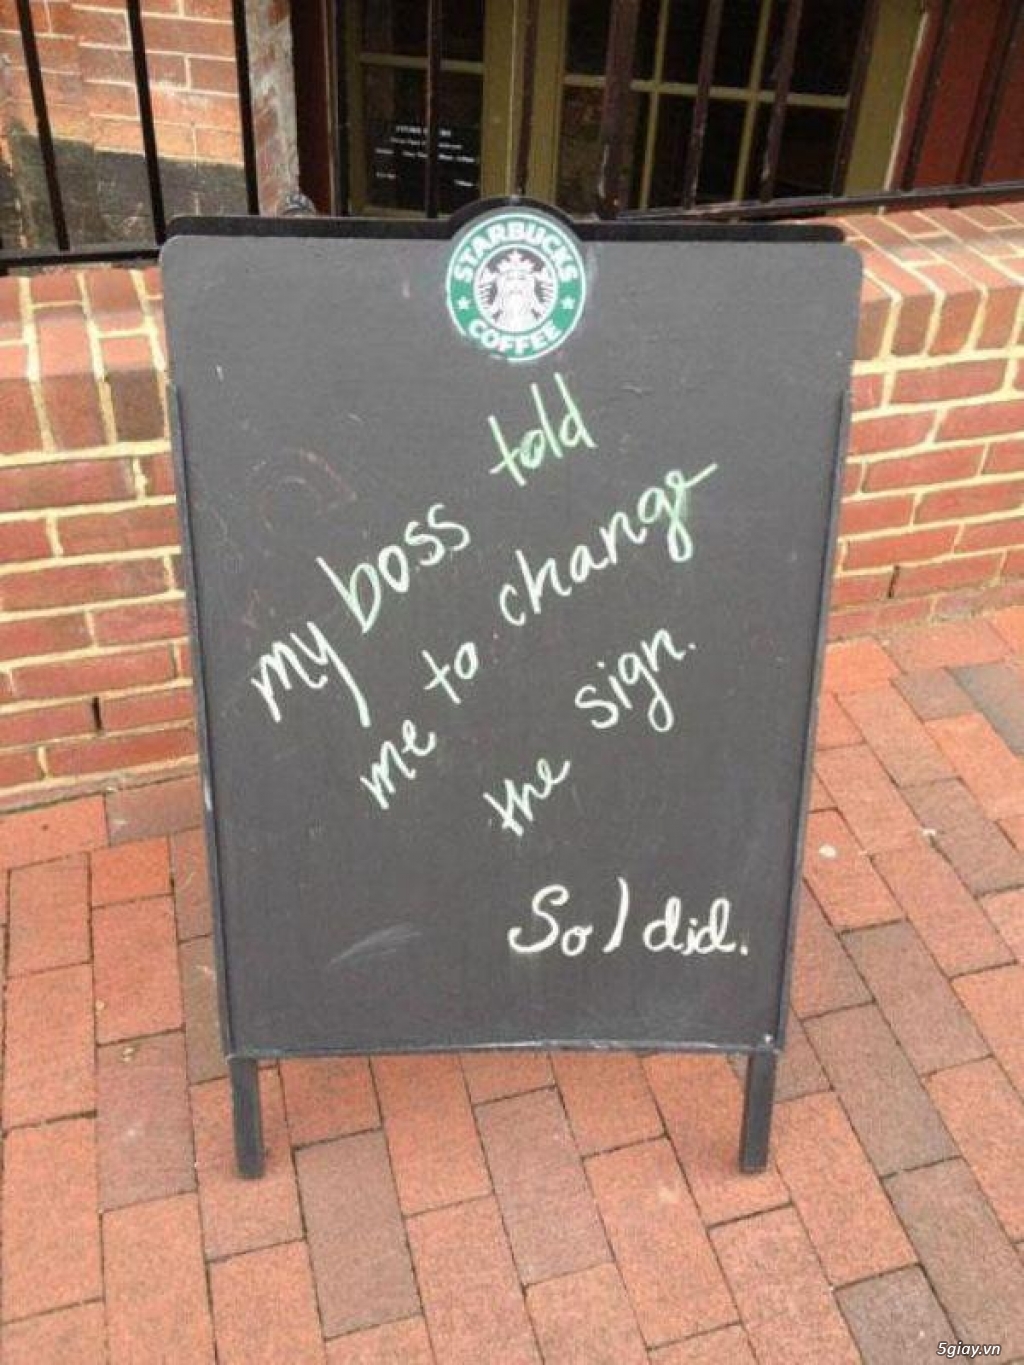 STARBUCKS
COFFEE
my boss told
me to change
the sign.
So I did.
5giay.vn